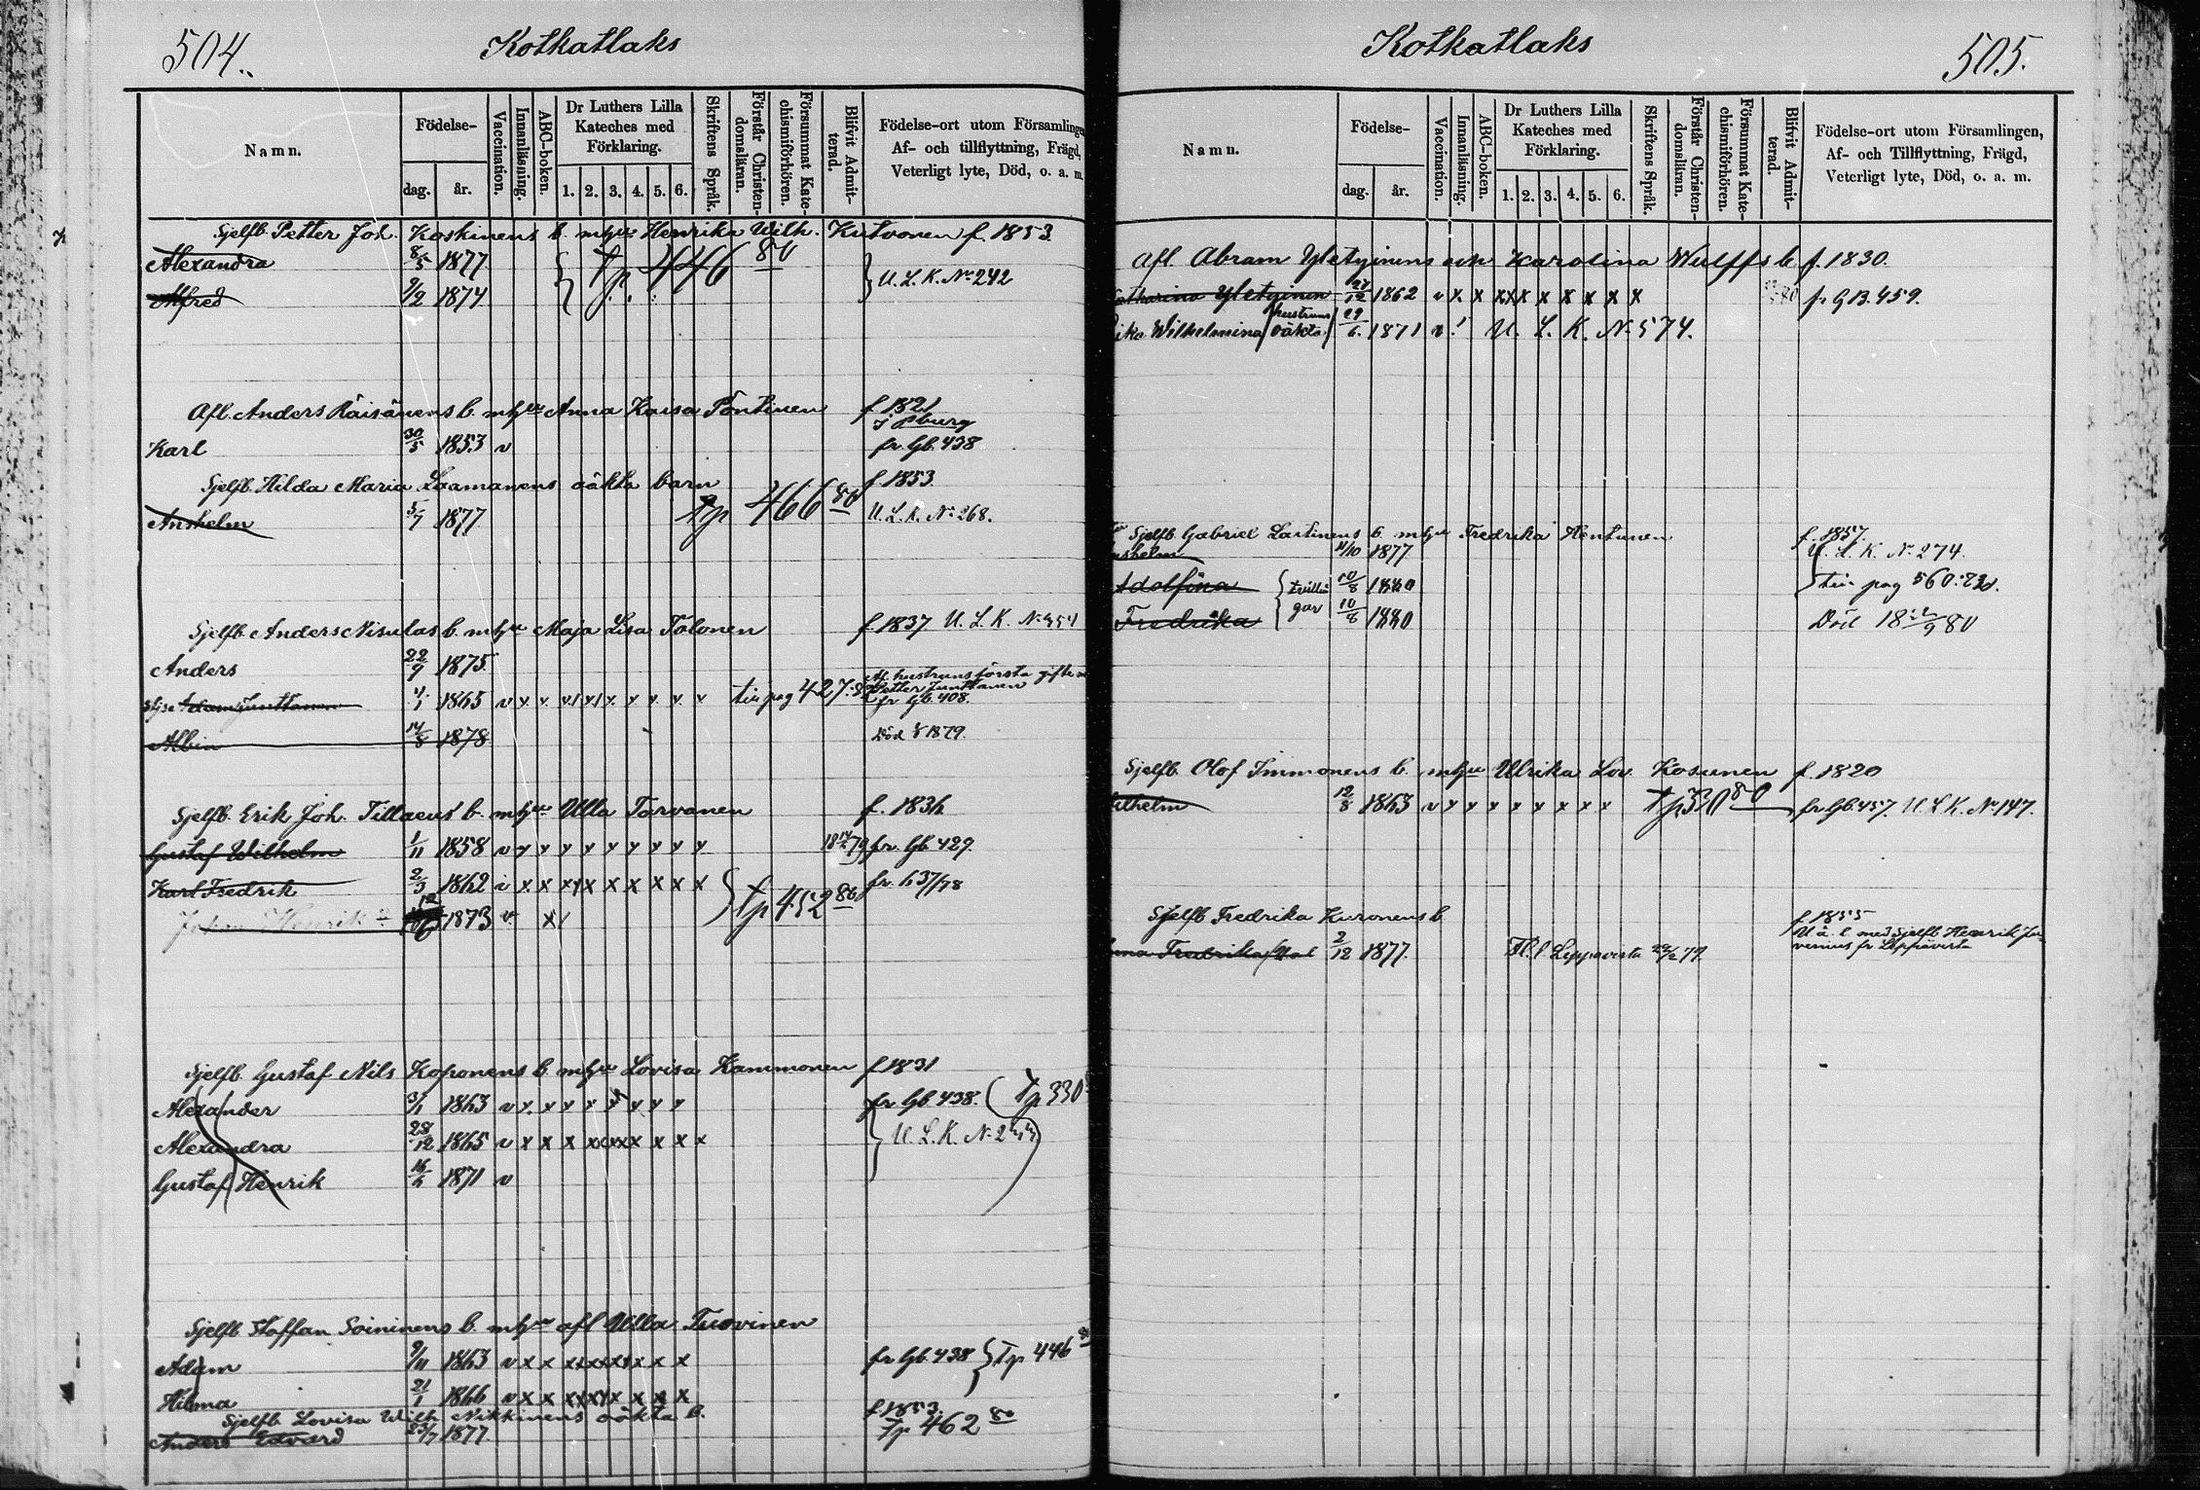 504.
Kotkatlaks
Namn.
Födelse-
dag.
år.
Vaccination.
Innanläsning.
ABC-boken.
Dr Luthers Lilla
Kateches med
Förklaring.
1. 2. 3. 4. 5. 6.
Skriftens Språk.
Förstår Christen-
domsläran.
Försummat Kate-
chismiförhören.
Blifvit Admit-
terad.
Födelse-ort utom Församlingen
Af- och tillflyttning, Frägd,
Veterligt lyte, Död, o. a. m.
Sjelfb. Petter Joh. Koskinens b. m hu Henrika Wilh. Kutvonen f. 1853
Alexandra 8/5 1877 Tp. 446 80 U. L. K. No 242
Alfred 9/2 1874
Afl. Anders Räisänens b. m hu Anna Kaisa Pöntinen f 1821
i Pburg
Karl 30/5 1853 v fr Gb. 438
Sjelfb. Hilda Maria Laamanens oäkta barn f 1853
Anshelm 5/7 1877 Tp 466 80 U. L. K. No 268.
Sjelfb. Anders Nisulas b. m hu Maja Lisa Tolonen f. 1837 U. L. K. No
Anders 22/9 1875
1865 v x x till pag 427 Af hustruns första gifte
Petter Junttanen
fr Gb. 408.
Albin 14/8 1878 Död 1879.
Sjelfb. Erik Joh. Tillaeus b. m hu Ulla Tarvanen f. 1834
Gustaf Wilhelm 1/11 1858 v x x x x x x x x x fr. Gb 429.
Karl Fredrik 2/3 1862 v x x x x x x x x x fr. h 37/78
Johan Henrik 1873 v x / tp 452 80
Sjelfb. Gustaf Nils Koponens b. m hu Lovisa Kammonen f 1831
Alexander 3/1 1863 v x x x x x x x x fr Gb 438. (Tp 330
Alexandra 28/12 1865 v x x x x x x x x x U. L. K. No
Gustaf Henrik 1871 v
Sjelfb. Staffan Soininens b. m hu afl Ulla Tuovinen
Adam 9/11 1863 v x x x x x x x x fr Gb. 438 Tp 446
Hilma 21/1 1866 v x x x x x x x x
Sjelfb. Lovisa Wilh. Nikkinens oäkta b. f 1853.
Anders Edvard 23/7 1877 Tp 462 80
Kotkatlaks
505.
Namn.
Födelse-
dag.
år.
Vaccination.
Innanläsning.
ABC-boken.
Dr Luthers Lilla
Kateches med
Förklaring.
1. 2. 3. 4. 5. 6.
Skriftens Språk.
Förstår Christen-
domsläran.
Försummat Kate-
chismiförhören.
Blifvit Admit-
terad.
Födelse-ort utom Församlingen,
Af- och Tillflyttning, Frägd,
Veterligt lyte, Död, o. a. m.
Afl. Abram Yletyinens och Karolina Wulffs b. f. 1830.
Katharina Yletyinen 27/12 1862 v x x x x x x x x x x fr G B. 459.
Wilhelmina (hustruns oäkta) 29/6 1871 v ! U. L. K. No 574.
Sjelfb. Gabriel Laitinens b. m hu Fredrika Hentunen f. 1857.
Anshelm 11/10 1877 U. L. K. No 274.
Adolfina tvillin 10/8 1880 till pag 560
Fredrika gar 10/8 1880 Död 18 /9 80
Sjelfb. Olof Immonens b. m hu Ulrika Lov. Kosunen f. 1820
Wilhelm 12/8 1863 v x x x x x x x x Tp 320 80 fr Gb. 457. U. L. K. No 147.
Sjelfb. Fredrika Kuronens b. f. 1855
U. ä. l. med Sjelfb Henrik Ju-
venius fr Leppävirta
Fredrika 2/12 1877. Fl. t Leppävirta 79